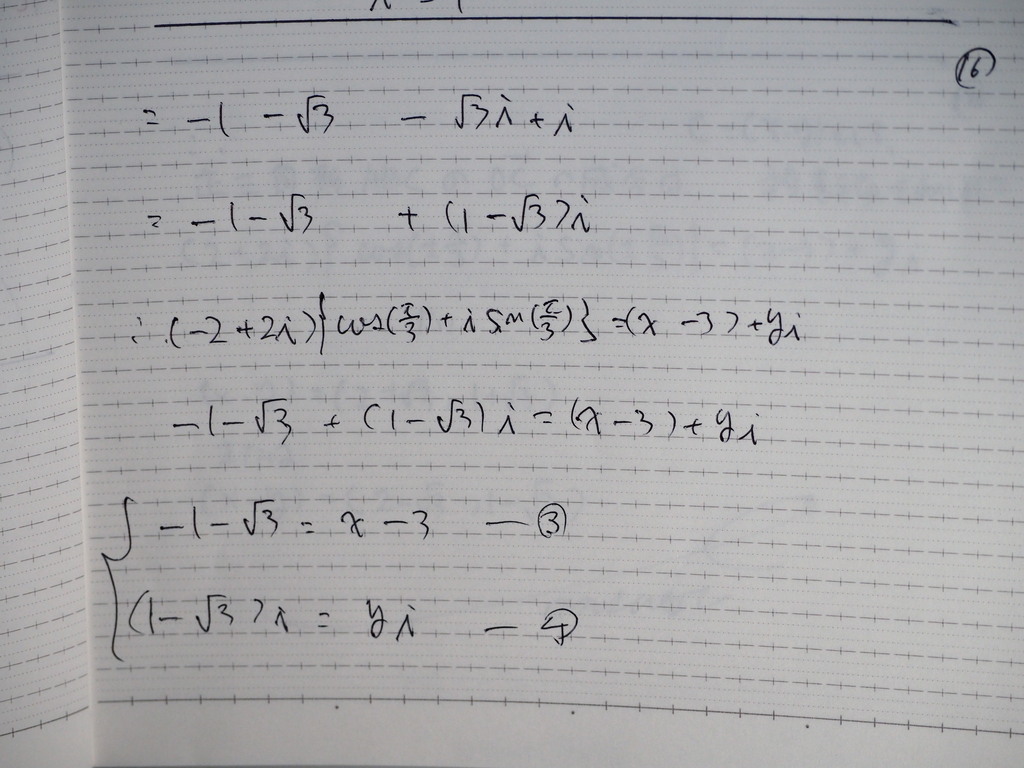 ⑯
= -1 - √3 - √3i + i
= -1 - √3 + (1 - √3)i
∴ (-2 + 2i){cos(π/3) + i sin(π/3)} = (x - 3) + yi
-1 - √3 + (1 - √3)i = (x - 3) + yi
{ -1 - √3 = x - 3 — ③
(1 - √3)i = yi — ④